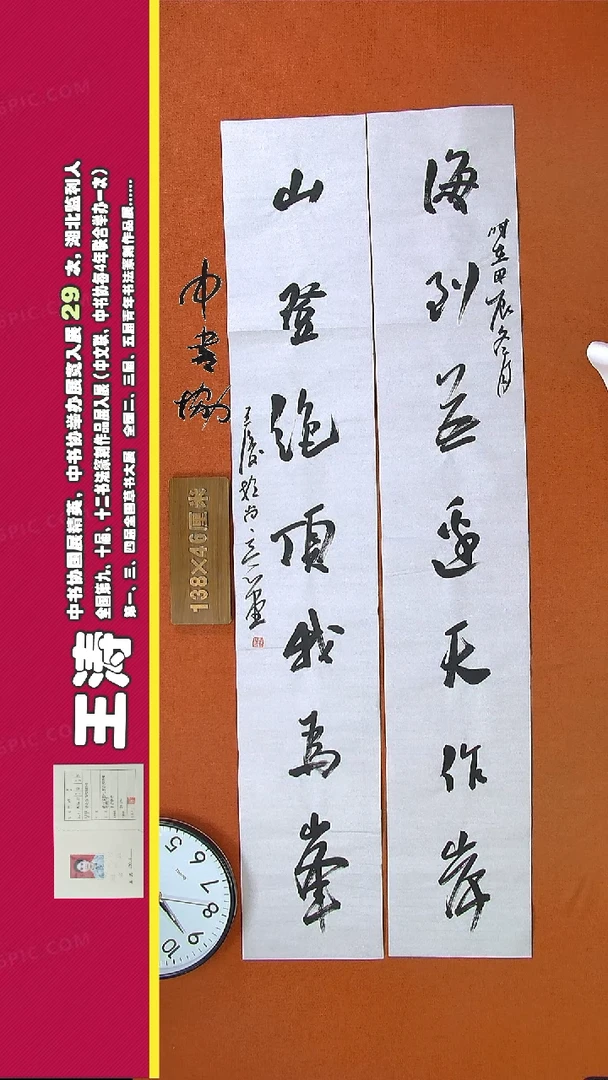 海到无边天作岸
时在甲辰冬月
山登绝顶我为峰
王涛于尚一画
中书协
138×46厘米
王涛
中书协国展精英，中书协举办展览入展 29 次，湖北监利人
全国第九、十届、十二书法篆刻作品展入展（中文联、中书协每4年联合举办一次）
第一、三、四届全国草书大展 全国二、三届、五届青年书法篆刻作品展……
5
6
7
8
9
10